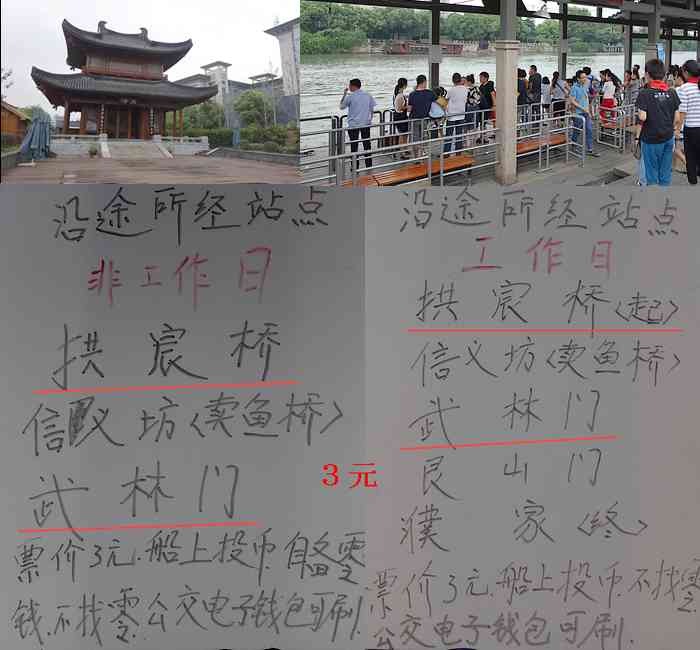 沿途所经站点
非工作日
拱宸桥
信义坊〈卖鱼桥〉
武林门
票价3元.船上投币.自备零
钱.不找零.公交电子钱包可刷.
3元
沿途所经站点
工作日
拱宸桥〈起〉
信义坊〈卖鱼桥〉
武林门
艮山门
濮家〈终〉
票价3元.船上投币.不找零.
公交电子钱包可刷.